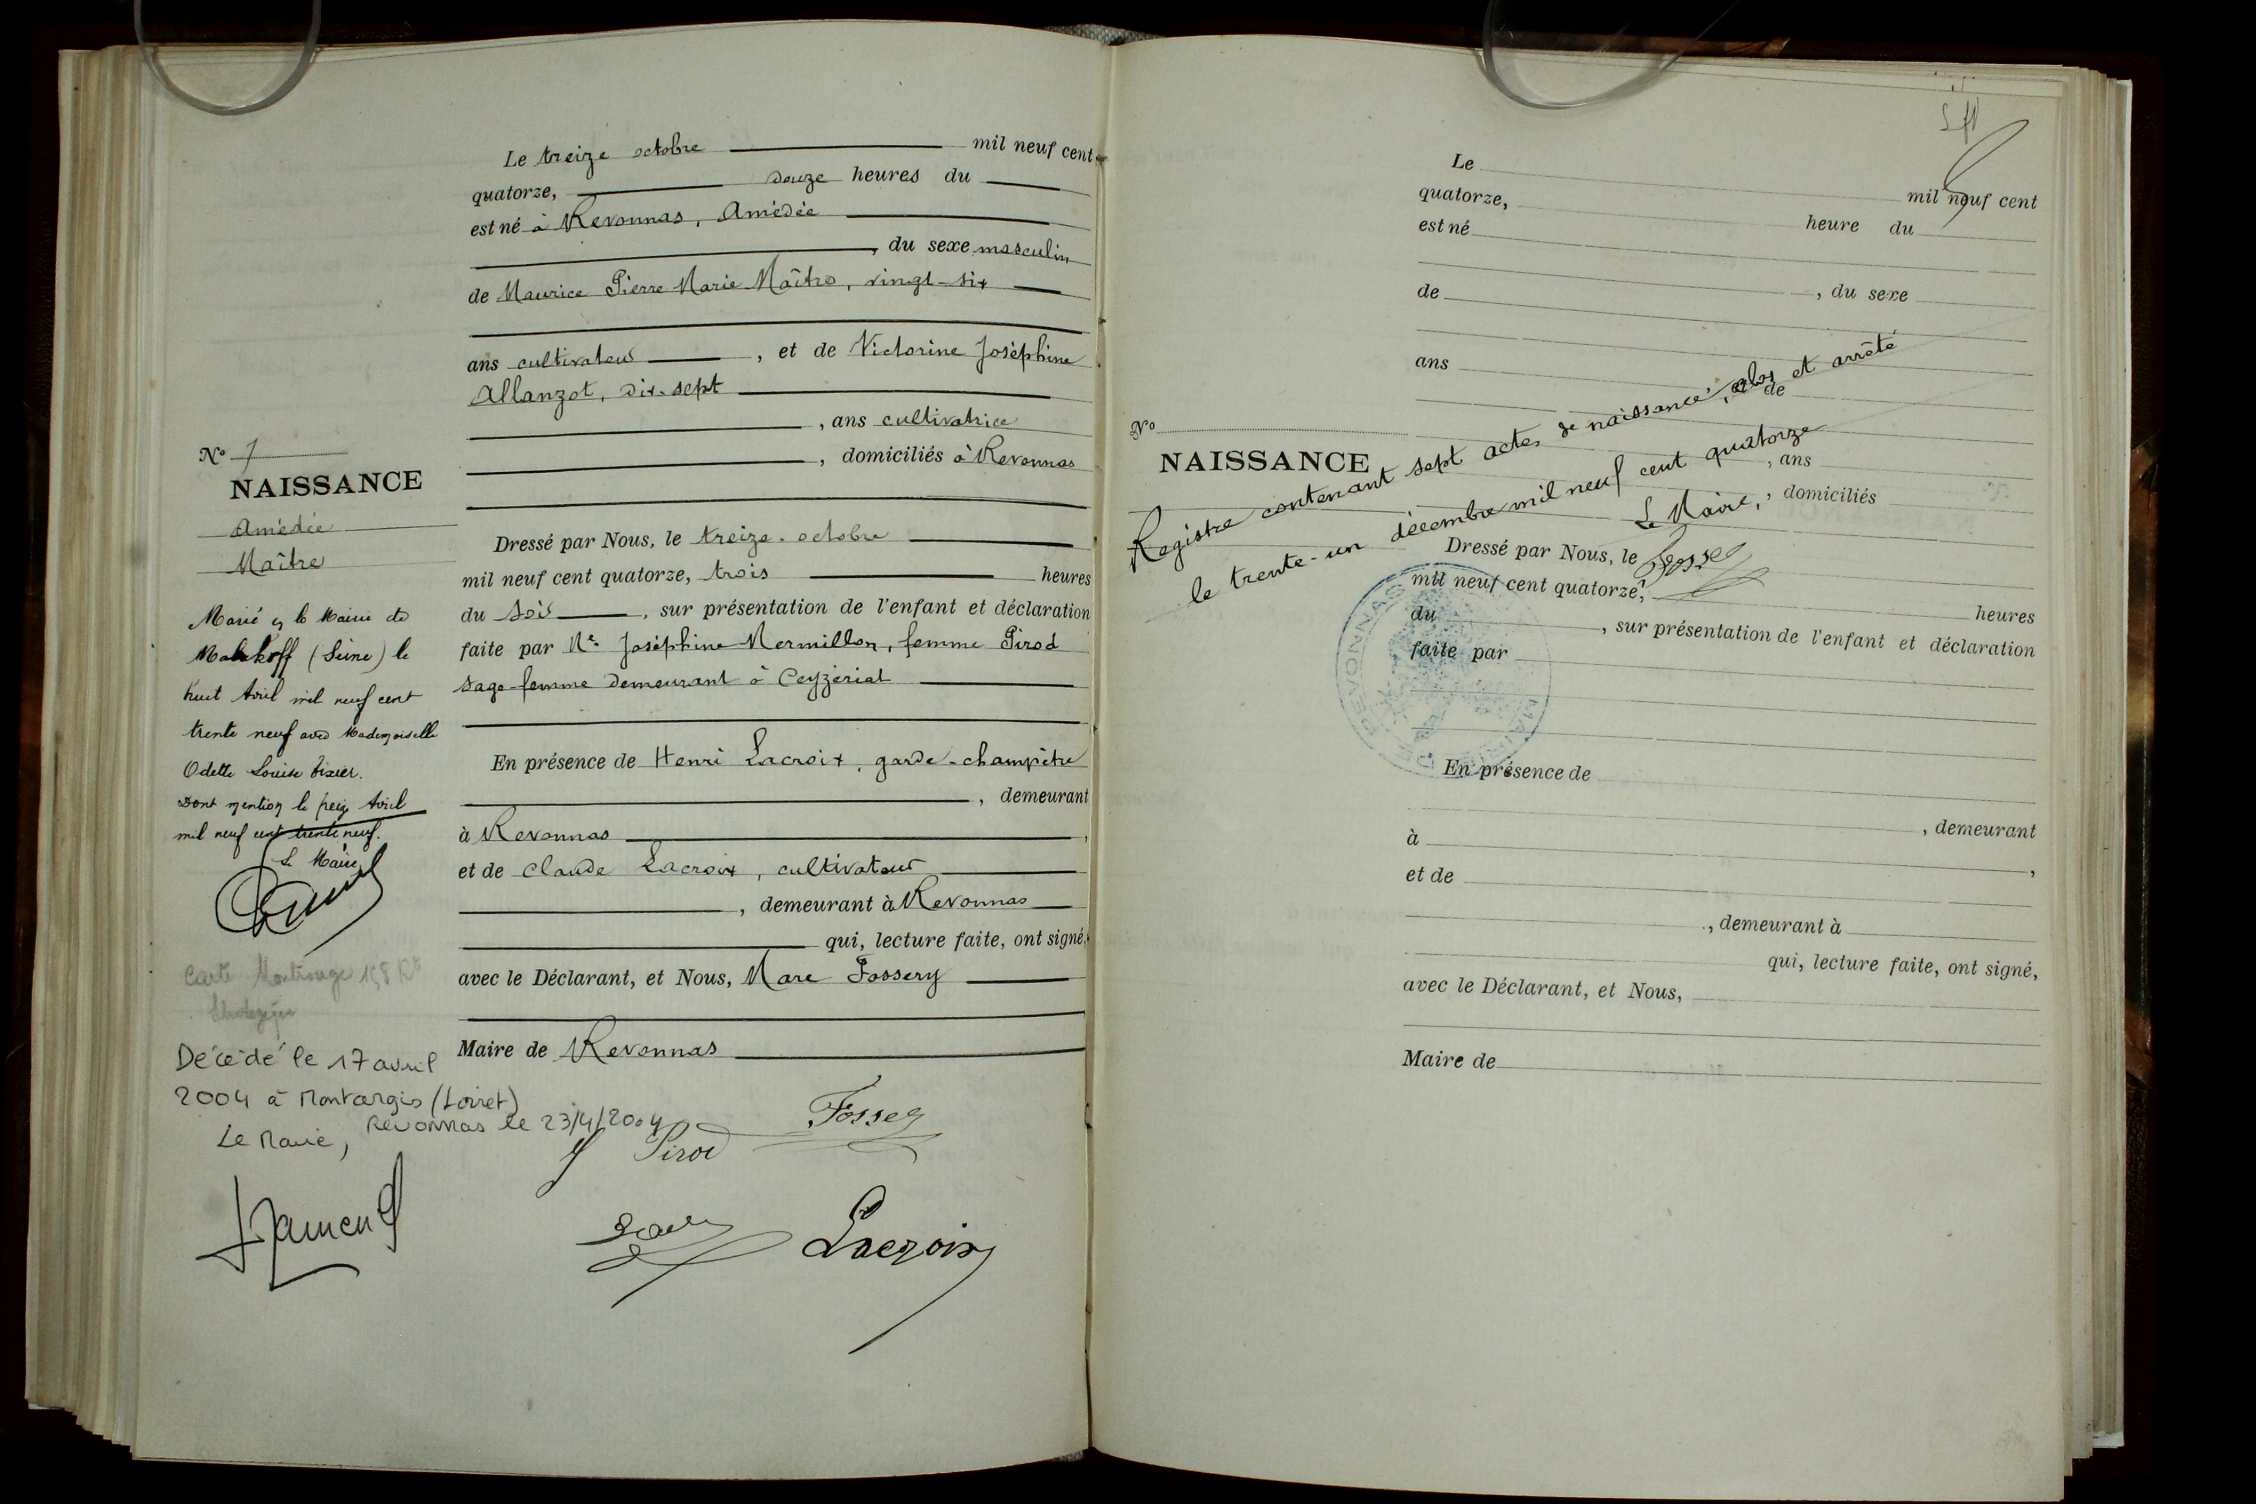 Le treize octobre mil neuf cent
quatorze, douze heures du
est né à Revonnas, Amédée
, du sexe masculin
de Maurice Pierre Marie Maître, vingt-six
ans cultivateur, et de Victorine Joséphine
Allanzot, dix-sept
, ans cultivatrice
, domiciliés à Revonnas
Dressé par Nous, le treize octobre
mil neuf cent quatorze, trois heures
du soir, sur présentation de l'enfant et déclaration
faite par Me Joséphine Mermillon, femme Pirod
sage-femme demeurant à Ceyzériat
En présence de Henri Lacroix, garde-champêtre
, demeurant
à Revonnas,
et de Claude Lacroix, cultivateur
, demeurant à Revonnas
qui, lecture faite, ont signé,
avec le Déclarant, et Nous, Marc Fossery
Maire de Revonnas
Fossey
J Pirod
Lacroix
No 7
NAISSANCE
Amédée
Maître
Marié à la Mairie de
Malakoff (Seine) le
huit Avril mil neuf cent
trente neuf avec Mademoiselle
Odette Louise
Dont mention le Avril
mil neuf cent trente neuf.
Le Maire
Carte Montrouge
Décédé le 17 avril
2004 à Montargis (Loiret)
Revonnas le 23/4/2004
Le Maire,
Le mil neuf cent
quatorze, heure du
est né
, du sexe
de
ans , et de
, ans
, domiciliés
No
NAISSANCE
Registre contenant sept actes de naissance, clos et arrêté
le trente-un décembre mil neuf cent quatorze
Le Maire,
Fossey
MAIRIE DE REVONNAS
Dressé par Nous, le
mil neuf cent quatorze, heures
du , sur présentation de l'enfant et déclaration
faite par
En présence de
, demeurant
à ,
et de
, demeurant à
qui, lecture faite, ont signé,
avec le Déclarant, et Nous,
Maire de